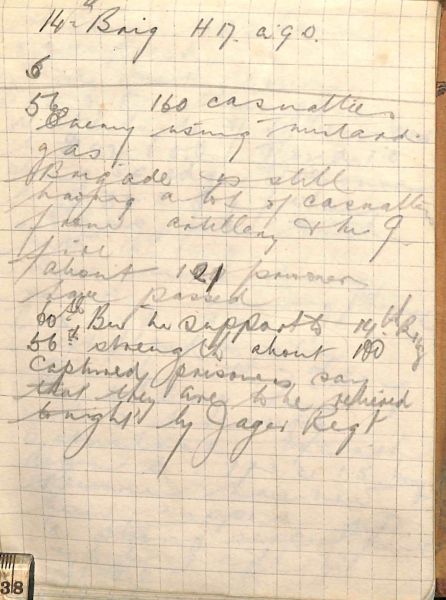 14th Brig H17. a.9.0.
6
56 160 casualties
Enemy using mustard
gas
Brigade is still
having a lot of casualties
from artillery & M G
fire
about 121 prisoners
have passed
60th Bn in support to 14th Brig
56th strength about 100
Captured prisoners say
that they are to be relieved
tonight by Jager Regt
38